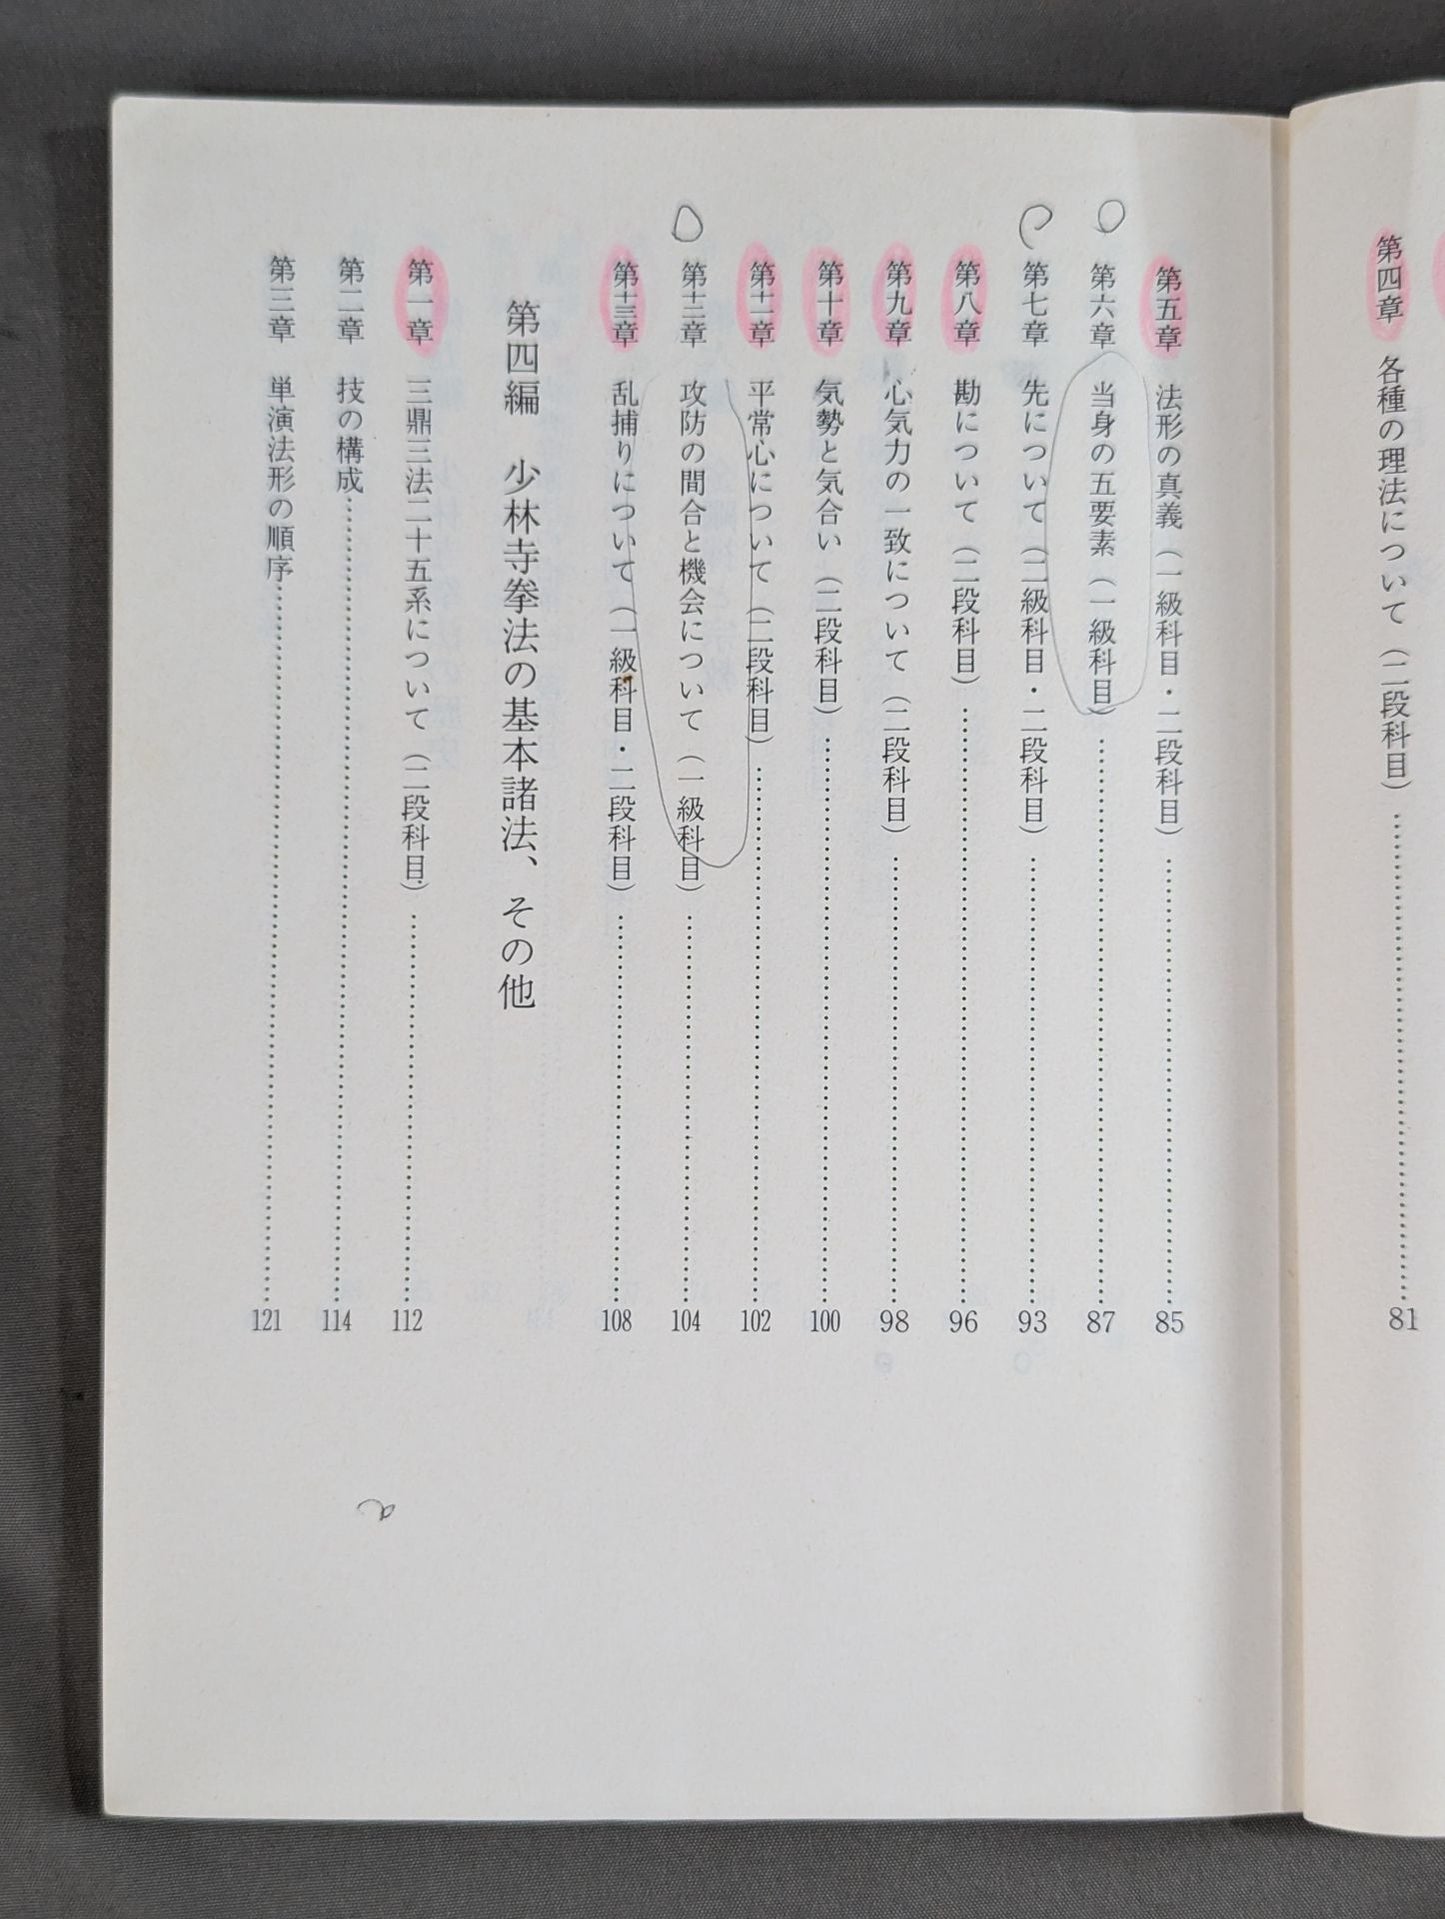 第四章 各種の理法について（二段科目）……81
第五章 法形の真義（一級科目・二段科目）……85
第六章 当身の五要素（一級科目）……87
第七章 先について（二級科目・二段科目）……93
第八章 勘について（二段科目）……96
第九章 心気力の一致について（二段科目）……98
第十章 気勢と気合い（二段科目）……100
第十一章 平常心について（二段科目）……102
第十二章 攻防の間合と機会について（一級科目）……104
第十三章 乱捕りについて（一級科目・二段科目）……108
第四編 少林寺拳法の基本諸法、その他
第一章 三鼎三法二十五系について（二段科目）……112
第二章 技の構成……114
第三章 単演法形の順序……121